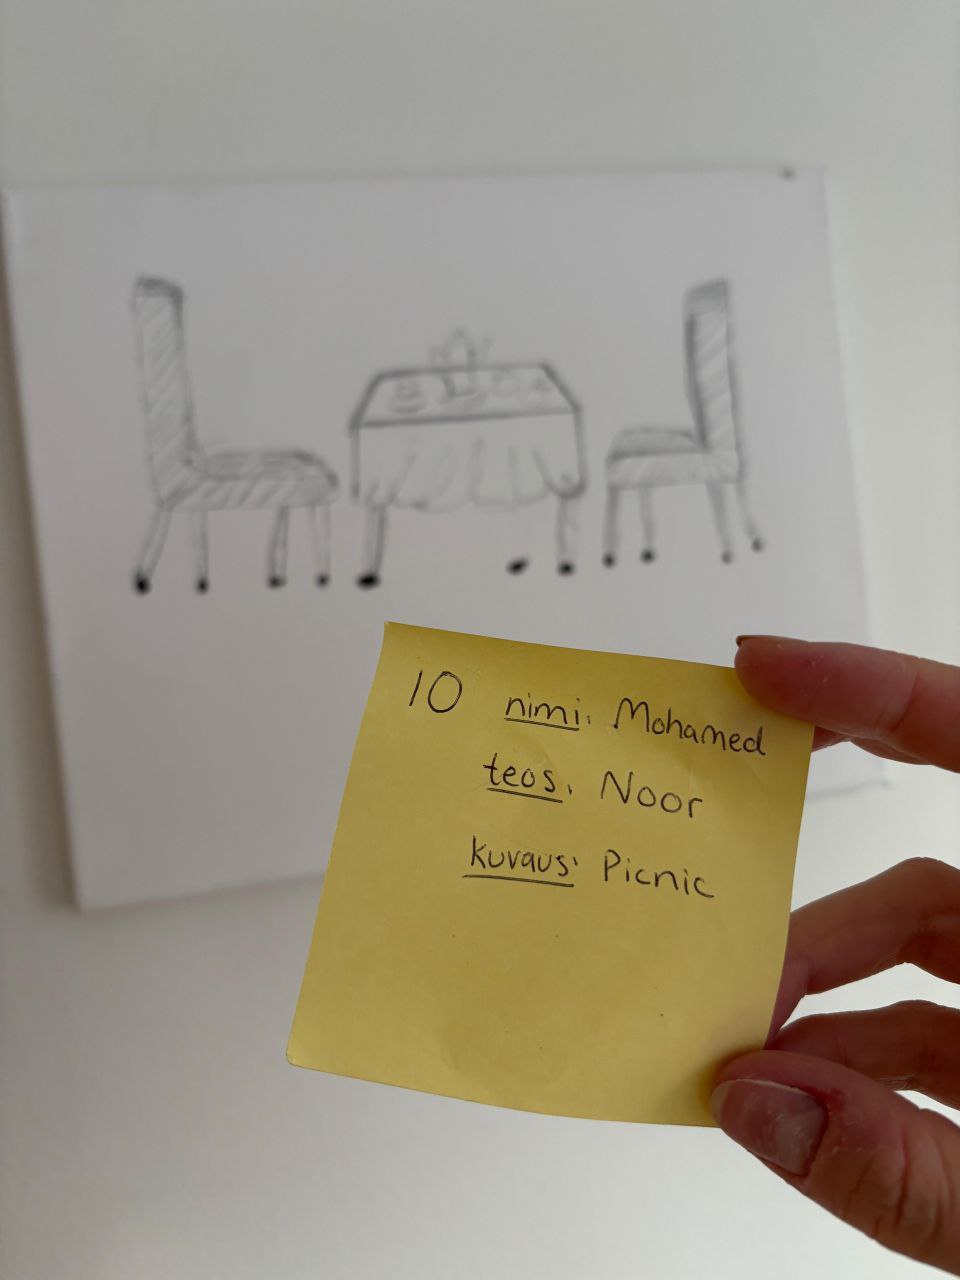 10 nimi: Mohamed
teos: Noor
kuvaus: Picnic